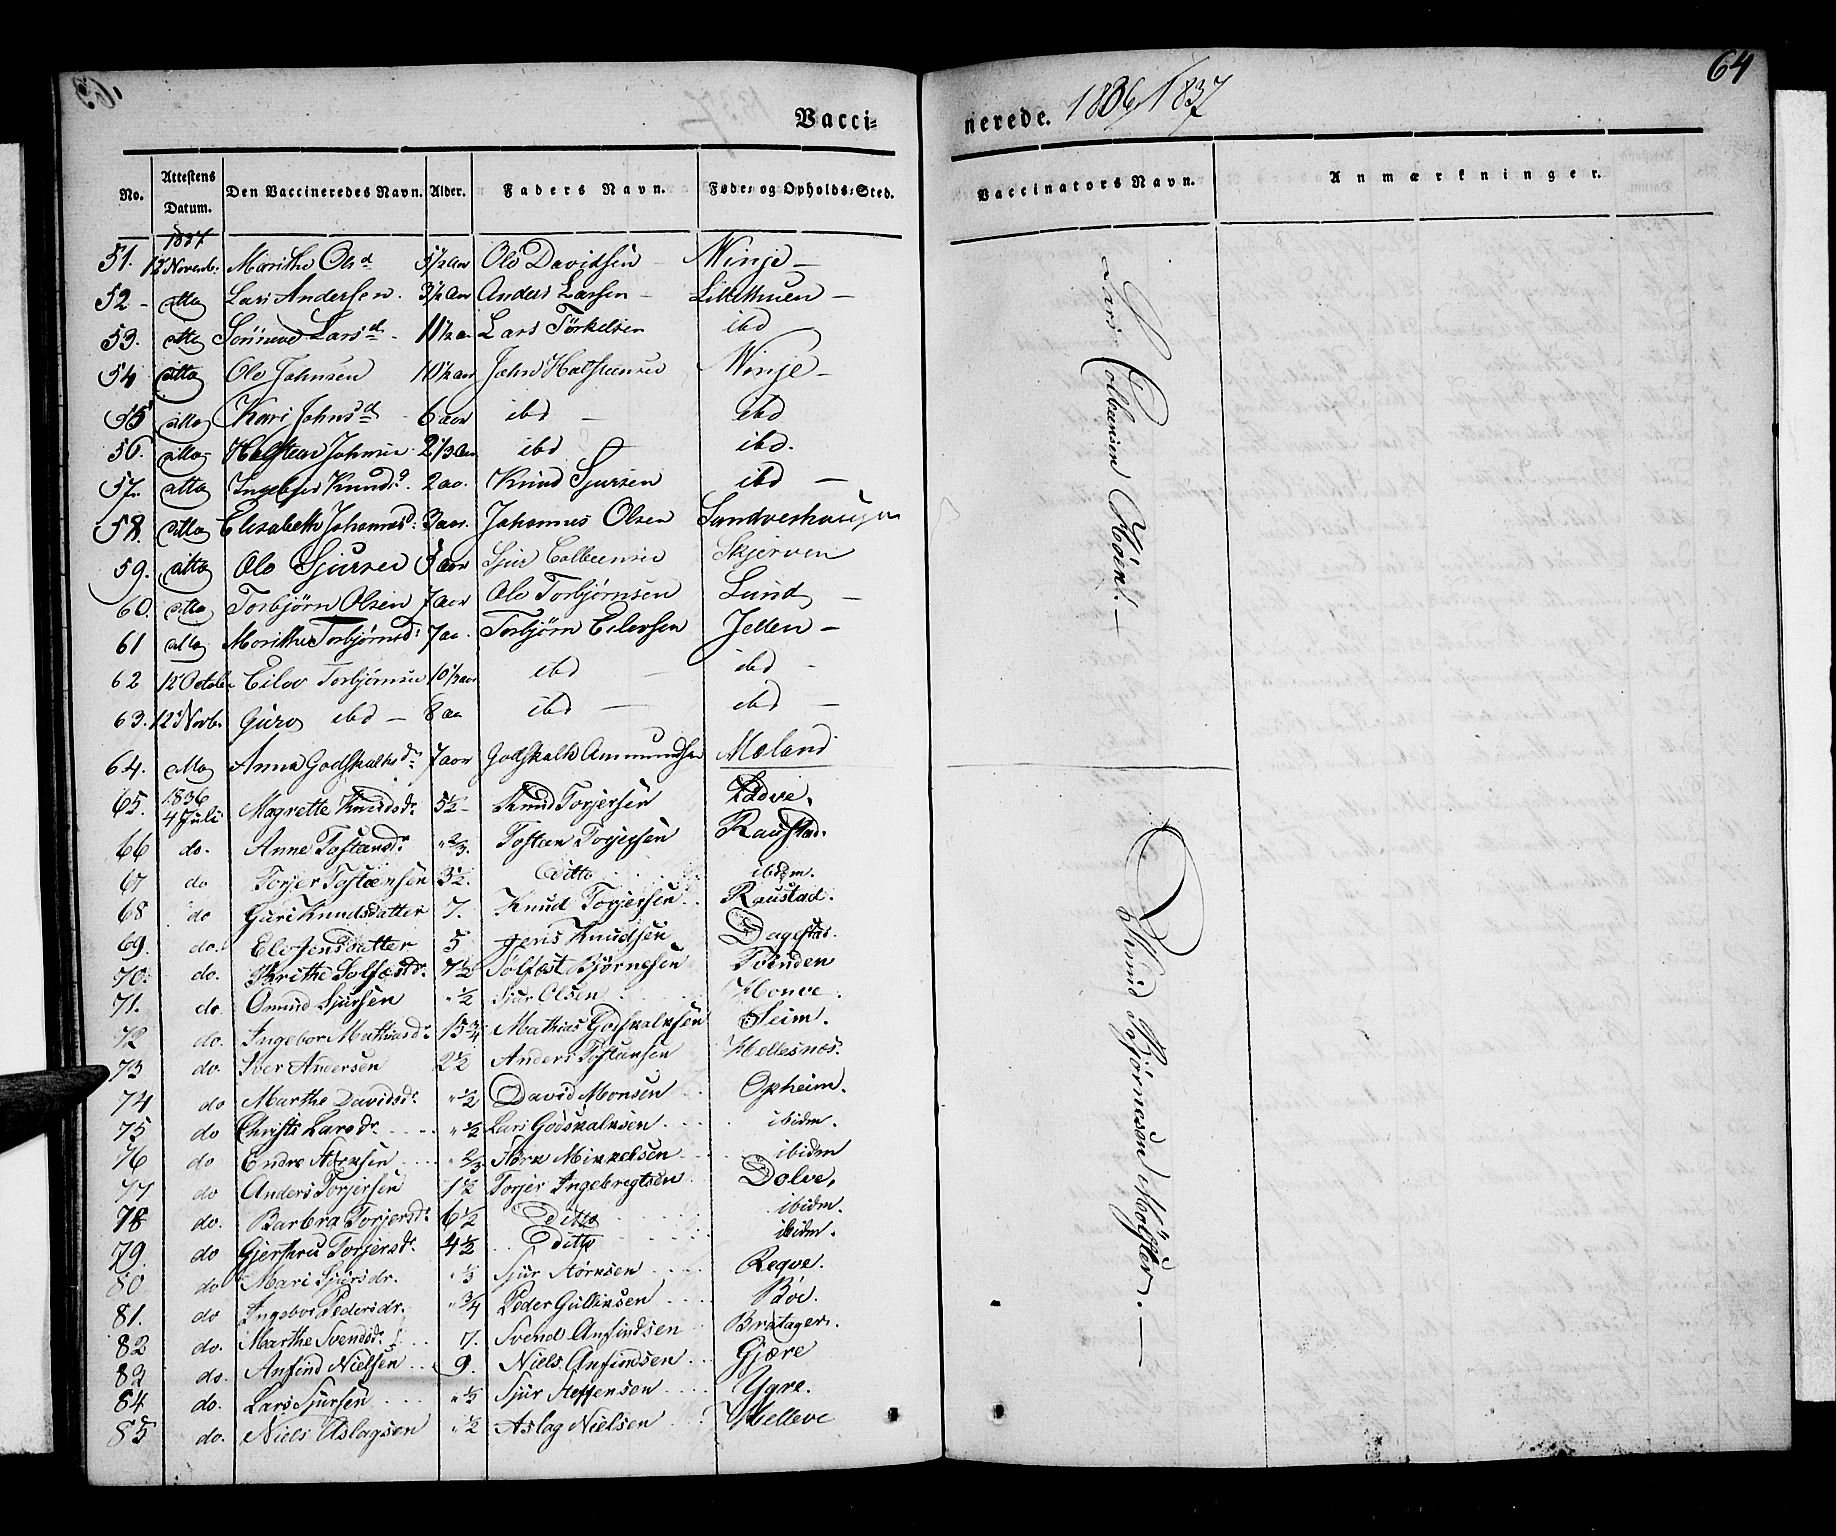 64
Vacci-
nerede. 1836/1837
No. Attestens Datum. Den Vaccineredes Navn. Alder. Faders Navn. Føde- og Opholds-Sted.
Vaccinators Navn. Anmærkninger.
1837
51. 12 Novemb. Marithe Olsd 5 1/2 aar Ole Davidsen Winje
52 ditto Lars Andersen. 3 1/2 aar Anders Larsen Lillethuen
53. ditto Sønneve Larsd 11 1/2 a. Lars Törkelsen ibd
54 ditto Ole Johnsen 10 1/2 aar John Halsteensen Winje
55 ditto Kari Johnsd 6 aar ibd ibd
56. ditto Halsteen Johnsen 2 1/3 aar ibd ibd.
57. ditto Ingebjør Knudsd. 2 aa. Knud Sjursen ibd
58. ditto Elisabeth Johannesd: 3 aar. Johannes Olsen Sundveshaugen
59. ditto Ole Sjursen 3 aar Sjur Colbeensen Skjerven
60. ditto Torbjörn Olsen 7 aar Ole Torbjørnsen Lund
61 ditto Marithe Torbjørnsd: 7 aa. Torbjørn Eilevsen Jellen
62 12 October Eilev Torbjørnsen 10 1/2 aar ibd ibd
63. 12 Novb. Guro ibd 8 aa ibd ibd
64. ditto Anna Godskalksd: 7 aar Godskalk Ammundsen Mæland
65. 1836 4 Juli Magrette Knudsdr 5 1/2 Knud Torjersen Lødve.
66 do. Anne Tostænsdr " 2/3. Tostæn Torjersen Raustad.
67 do Torjer Tostænsen 3 1/2. Ditto ibidm.
68 do Guri Knudsdatter 7. Knud Torjersen Raustad.
69. do. Eli Jensdatter 5 Jens Knudsen Dagestad.
70. do. Brithe Solfæstdr. 7 1/2 Solfæst Bjørnesen Tvinden
71. do. Omund Sjursen " 1/2 Sjur Olsen Honve.
72 do. Ingebor Mathiasdr 15 3/4 Mathias Godskalksen Seim.
73 do. Iver Andersen 2 1/2 Anders Tostænsen Hellesnæs.
74 do Marthe Davidsdr " 1/2 David Monsen Opheim.
75 do Christi Larsdr. " 1/2 Lars Godskalksen ibidm.
76 do Endre Størksen " 2/3 Størk Mikkelsen ibidm
77 do Anders Torjersen 1 1/2 Torjer Ingebrigtsen Dolve.
78 do. Barbra Torjersdr 6 1/2 Ditto ibidm.
79. do Gjerthru Torjersdr. 4 1/2 Ditto ibidm.
80 do Mari Sjursdr. " 1/3 Sjur Størksen Reqve.
81. do Ingebor Pedersdr. " 3/4 Peder Gulliksen Bøe.
82 do. Marthe Svendsdr. 7. Svend Anfindsen Bratager.
83 do. Anfind Nielsen 9. Niels Anfindsen Gjære
84 do. Lars Sjursen " 1/3 Sjur Steffensen Ygre.
85 do. Niels Aslagsen " 1/2 Aslag Nielsen Helleve
Lars Colbensen
Knud Bjørnesen Møgster.